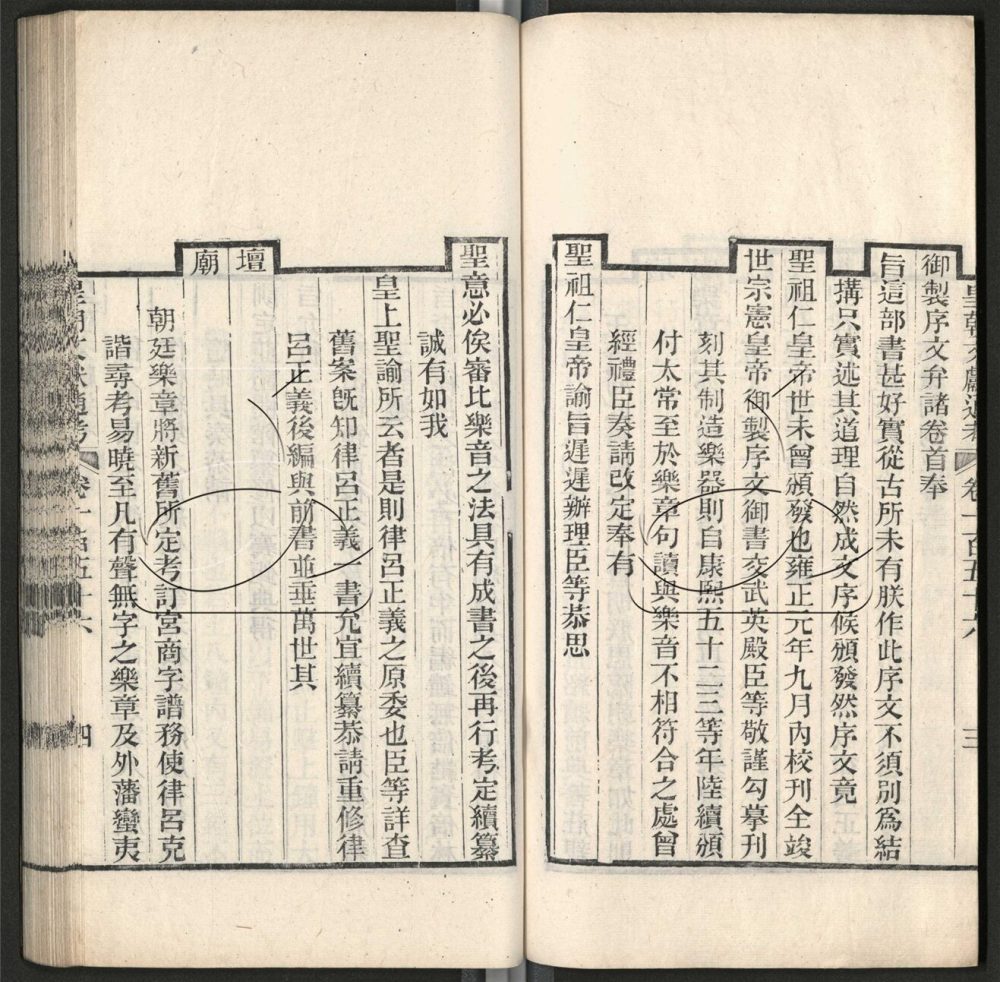 皇朝文獻通考 卷一百五十六 三
御製序文弁諸卷首奉
旨這部書甚好實從古所未有朕作此序文不須別爲結
搆只實述其道理自然成文序候頒發然序文竟
聖祖仁皇帝世未曾頒發也雍正元年九月內校刊全竣
世宗憲皇帝御製序文御書交武英殿臣等敬謹勾摹刊
刻其制造樂器則自康熙五十二三等年陸續頒
付太常至於樂章句讀與樂音不相符合之處曾
經禮臣奏請改定奉有
聖祖仁皇帝諭旨遲遲辦理臣等恭思
聖意必俟審比樂音之法具有成書之後再行考定續纂
誠有如我
皇上聖諭所云者是則律呂正義之原委也臣等詳查
舊案旣知律呂正義一書允宜續纂恭請重修律
呂正義後編與前書並垂萬世其
壇
廟
朝廷樂章將新舊所定考訂宮商字譜務使律呂克
諧尋考易曉至凡有聲無字之樂章及外藩蠻夷
皇朝文獻通考 卷一百五十六 四